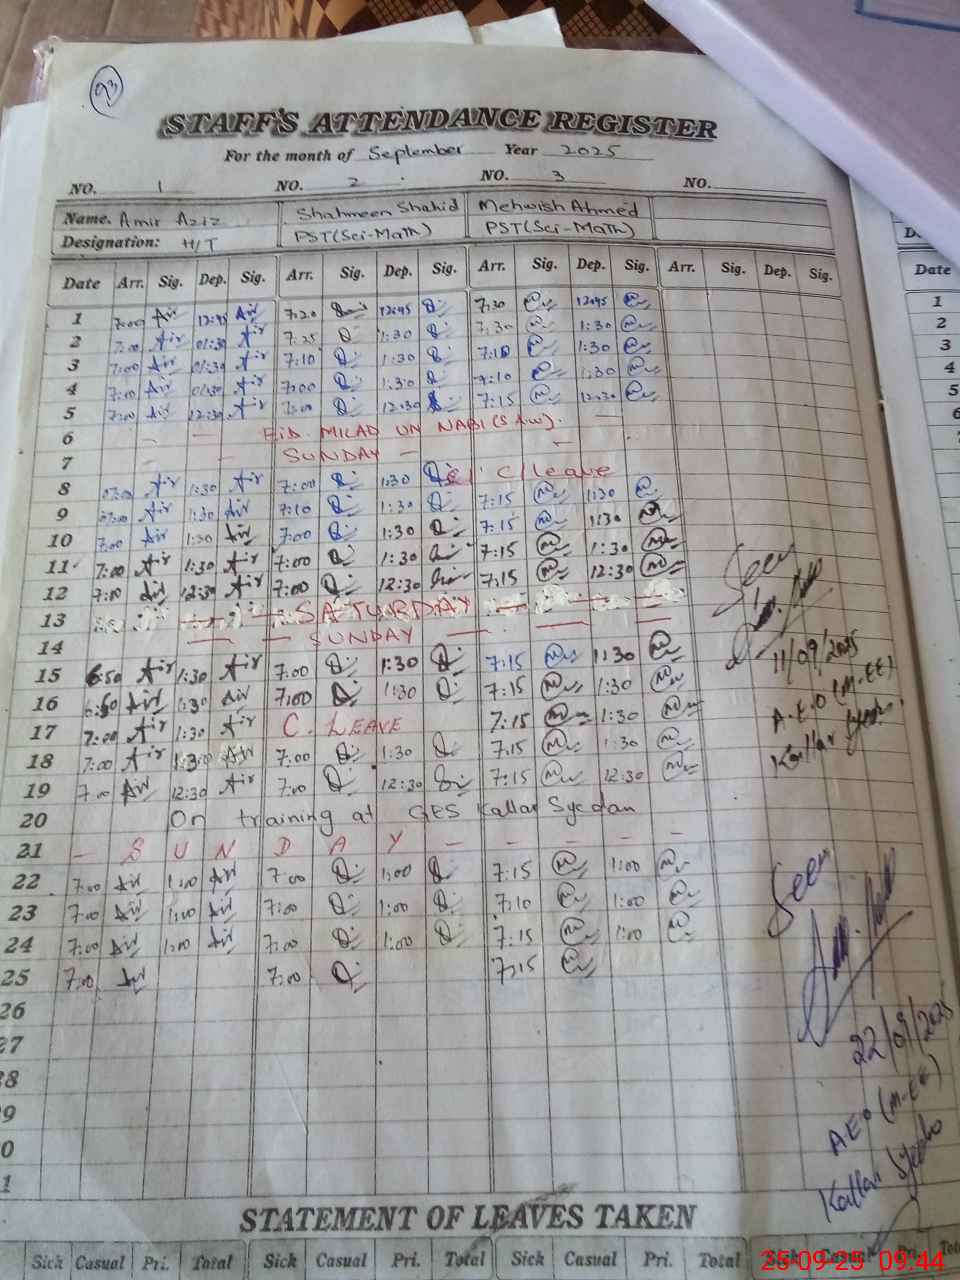 93
STAFF'S ATTENDANCE REGISTER
For the month of September Year 2025
NO. 1 NO. 2 NO. 3 NO.
Name. Amir Aziz Shahmeen Shahid Mehwish Ahmed
Designation: H/T PST(Sci-Math) PST(Sci-Math)
Date Arr. Sig. Dep. Sig. Arr. Sig. Dep. Sig. Arr. Sig. Dep. Sig. Arr. Sig. Dep. Sig. Date
1 7:00 Air 12:45 Air 7:20 12:45 7:30 12:45 1
2 7:00 Air 01:30 Air 7:25 1:30 7:30 1:30 2
3 7:00 Air 01:30 Air 7:10 1:30 7:10 1:30 3
4 7:00 Air 01:30 Air 7:00 1:30 7:10 1:30 4
5 7:00 Air 12:30 Air 7:00 12:30 7:15 12:30 5
6 - - EID. MILAD UN NABI (S.A.W). -
7 - - SUNDAY - -
8 07:00 Air 1:30 Air 7:00 1:30 C/leave
9 07:00 Air 1:30 Air 7:10 1:30 7:15 1:30
10 7:00 Air 1:30 Air 7:00 1:30 7:15 1:30
11 7:00 Air 1:30 Air 7:00 1:30 7:15 1:30
12 7:00 Air 12:30 Air 7:00 12:30 7:15 12:30
13 - - SATURDAY - - -
14 - - SUNDAY - - -
15 6:50 Air 1:30 Air 7:00 1:30 7:15 1:30
16 6:50 Air 1:30 Air 7:00 1:30 7:15 1:30
17 7:00 Air 1:30 Air C. LEAVE 7:15 1:30
18 7:00 Air 1:30 Air 7:00 1:30 7:15 1:30
19 7:00 Air 12:30 Air 7:00 12:30 7:15 12:30
20 On training at GES Kallar Syedan
21 - S U N D A Y - - - - -
22 7:00 Air 1:00 Air 7:00 1:00 7:15 1:00
23 7:00 Air 1:00 Air 7:00 1:00 7:10 1:00
24 7:00 Air 1:00 Air 7:00 1:00 7:15 1:00
25 7:00 Air 7:00 7:15
26
27
8
9
0
1
Seen
11/09/2025
A.E.O (M-EE)
Kallar Syedan
Seen
22/09/2025
AEO (M-EE)
Kallar Syedan
STATEMENT OF LEAVES TAKEN
Sick Casual Pri. Total Sick Casual Pri. Total Sick Casual Pri. Total Sick Casual Pri.
25-09-25 09:44